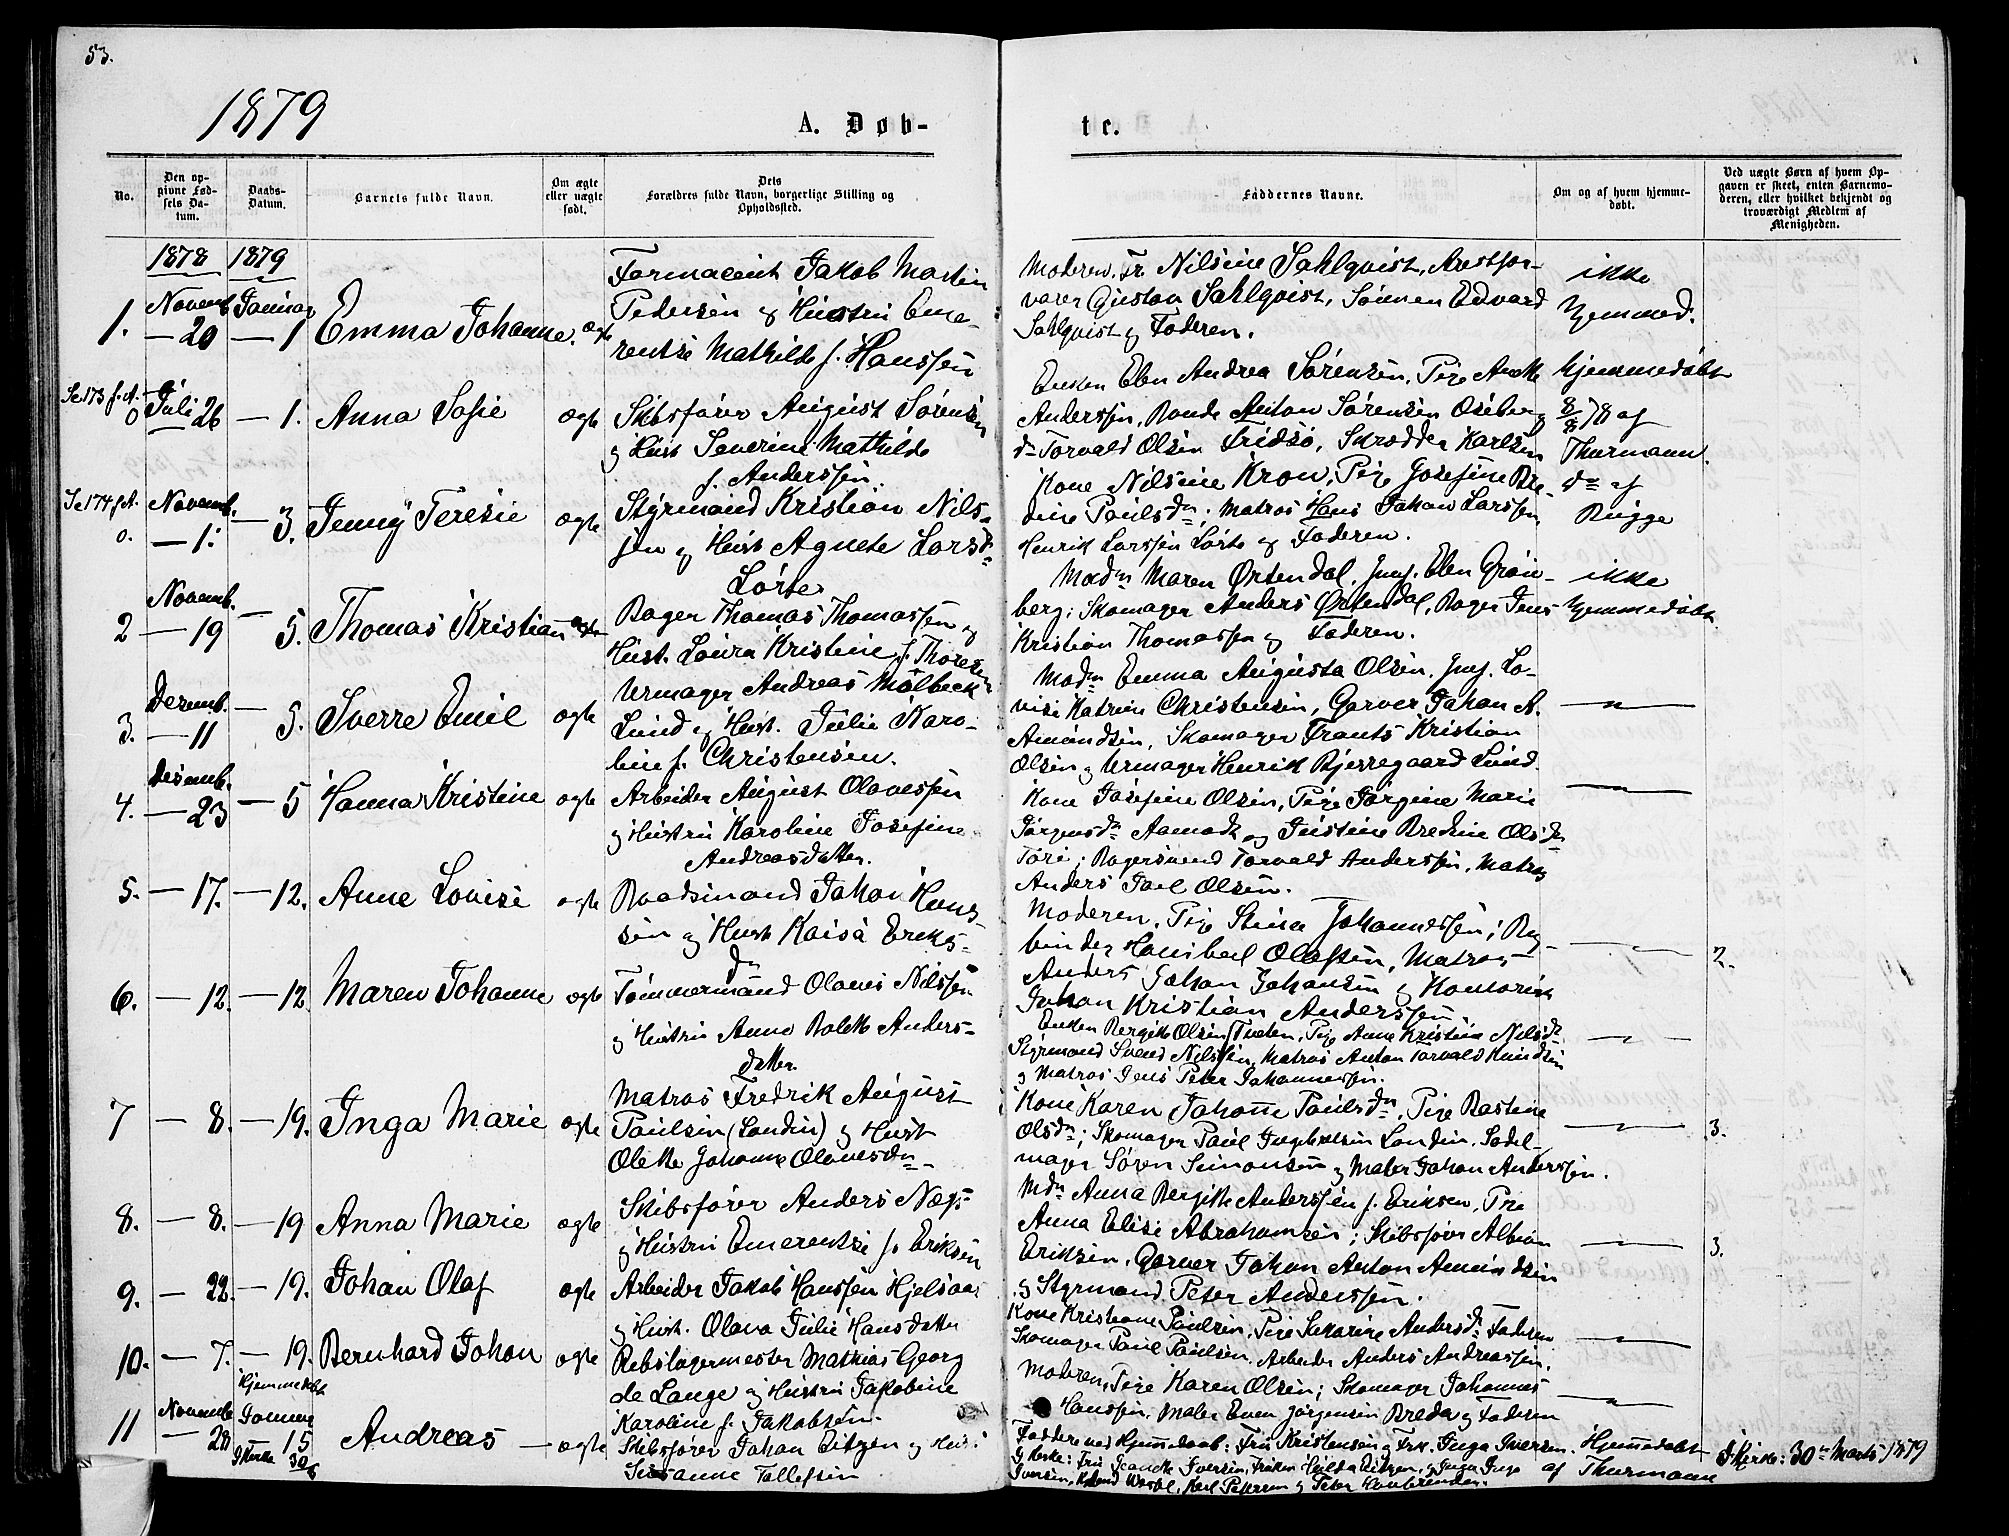 53.
1879
A. Døb-
te.
No.
Den op-
givne Fød-
sels Da-
tum.
Daabs-
Datum.
Barnets fulde Navn.
Om ægte
eller uægte
født.
Dets
Forældres fulde Navn, borgerlige Stilling og
Opholdssted.
Faddernes Navne.
Om og af hvem hjemme-
døbt.
Ved uægte Børn af hvem Op-
gaven er skeet, enten Barnemo-
deren, eller hvilket bekjendt og
troværdigt Medlem af
Menigheden.
1878 1879
1. Novemb. — 20 Januar — 1 Emma Johanne. ægte
Farmaceut Jakob Martin
Pedersen og Hustru Eme-
rentse Mathilde f. Hanssen
Moderen, Fr. Nilsine Sahlqvist,
Gustav Sahlqvist, Sønnen Edvard
Sahlqvist og Faderen.
ikke
hjemmed.
Se 173 f. A.
0 Juli 26 — 1. Anna Sofie ægte
Skibsfører August Sørensen
og Hust Severine Mathilde
f. Anderssen.
Enken Elen Andrea Sørensen, Pige Anette
Anderssen, Bonde Anton Sørensen Oseberg
Torvald Olsen Fridsø, Skrædder Karlsen
hjemmedøbt
8/8 78 af
Thurmann.
Se 174 f. A.
0. Novemb. — 1. — 3. Jenny Teresie ægte
Styrmand Kristian Nils-
sen og Hust Agnete Larsdr
Lørte
Kone Nilsine Krow, Pige Josefine Bre-
dine Paulsdn; Matros Hans Johan Larssen
Henrik Larssen Lørte og Faderen.
do af
Bugge
2 Novemb. — 19 — 5. Thomas Kristian ægte
Bager Thomas Thomassen og
Hust. Laura Kristine f. Thoresen
Madm Maren Ørtendal, Jmf. Elen Grøn-
berg; Skomager Anders Ørtendal, Bager Jens
Kristian Thomassen og Faderen.
ikke
hjemmedøbt
3. Decemb. — 11 — 5. Sverre Emil ægte
Urmager Andreas Mølbeck
Lund og Hust. Julie Karo-
line f. Christensen.
Madm Emma Augusta Olsen, Jmf. Lo-
vise Katrine Christensen, Garver Johan A.
Amundsen, Skomager Frants Kristian
Olsen og Urmager Henrik Bjerregaard Lund.
— " —
4. Desemb. — 23 — 5 Hanna Kristine ægte
Arbeider August Olavessen
og Hustru Karoline Josefine
Andreasdatter.
Kone Josefine Olsen, Pige Jørgine Marie
Jørgensdn Aamodt og Justine Bredine Olsdn
Tøri; Bagersvend Torvald Anderssen, Matros
Anders Olsen.
— " —
5. — 17. — 12. Anne Lovise ægte
Baadsmand Johan Hans-
sen og Hust Kaisa Eriks-
dn
Moderen, Pige Stina Johannessen; Bog-
binder Hanibal Olafsen, Matros
Anders Johan Johansen og
Johan Kristian Anderssen.
— " —
2.
6. — 12. — 12 Maren Johanne ægte
Tømmermand Olaves Nilssen
og Hustru Anne Bolette Anders-
datter.
Enken Bergitte Olsen Tveten, Pige Anne Kristine Nilsdr.
Styrmand Svend Nilssen, Matros Anton Torvald Knudsen
og Matros Jens Peter Johannessen.
— " —
7 — 8. — 19. Inga Marie ægte
Matros Fredrik August
Paulsen (Londin) og Hust
Olette Johanne Olavesdn
Kone Karen Johanne Paulsdn, Pige Bastine
Olsdn; Skomager Paul Ingebretsen Londin, Sadel-
mager Søren Simonsen og Maler Johan Anderssen.
— " —
3.
8. — 8. — 19 Anna Marie ægte
Skibsfører Anders Næss
og Hustru Emerentse f. Eriksen
Mdm Anna Bergitte Anderssen f. Eriksen, Pige
Anna Elise Abrahamsen; Skibsfører Albion
Eriksen, Garver Johan Anton Amundsen
og Styrmand Peter Anderssen.
— " —
3.
9. — 22. — 19. Johan Olaf ægte
Arbeider Jakob Hanssen Hjelsaas
og Hust. Olava Julie Hansdatter
Kone Kristiane Paulsen, Pige Andersdr, Faderen
Skomager Paul Paulsen, Arbeider Anders Andreassen.
— " —
10. — 7. — 19. Bernhard Johan ægte
Rebslagermester Mathias Georg
de Lange og Hustru Jakobine
Karoline f. Jakobsen.
Moderen, Pige Karen Olsen; Skomager Johannes
Hanssen, Maler Even Jørgensen Breda og Faderen
— " —
11 Novemb. — 28 Hjemmedbt Januar 15 I Kirke 30/3 Andreas — ægte
Skibsfører Johan Eitzen og Hust.
Susanne Tollefsen
Faddere ved Hjemmedaab: Fru Kristensen og Frk. Inga Iversen.
I Kirke: Fru Iversen, Frøken Hilda Eitzen, Inga
Iversen, Karl Petersen og Peter
Hjemmedøbt
af Thurmann
I Kirke: 30te Marts 1879